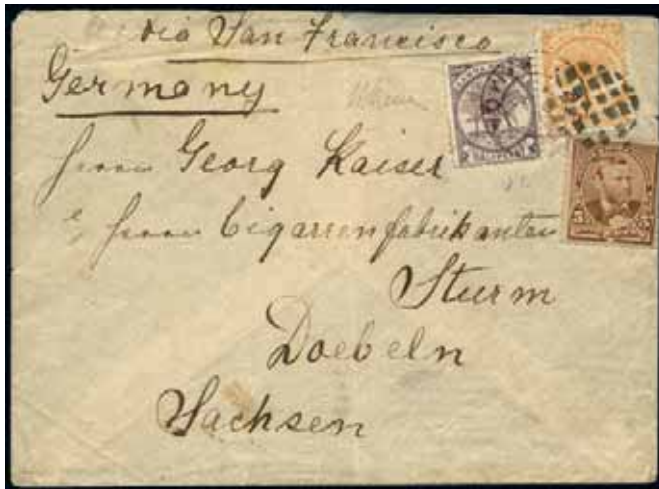 via San Francisco
Germany
Herrn Georg Kaiser
Herrn Cigarrenfabrikanten
Sturm
Doebeln
Sachsen